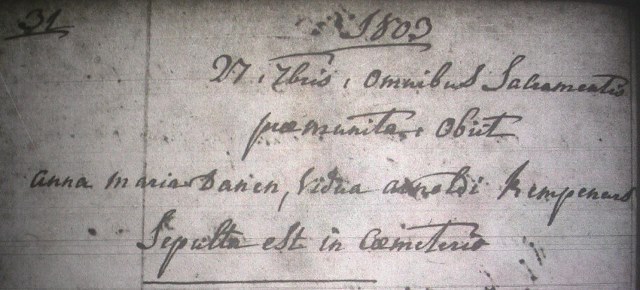 31 1803
27. 7bris, omnibus Sacramentis
præmunita, obiit
anna maria Danen, Vidua arnoldi Kempeners
Sepulta est in Cœmeterio